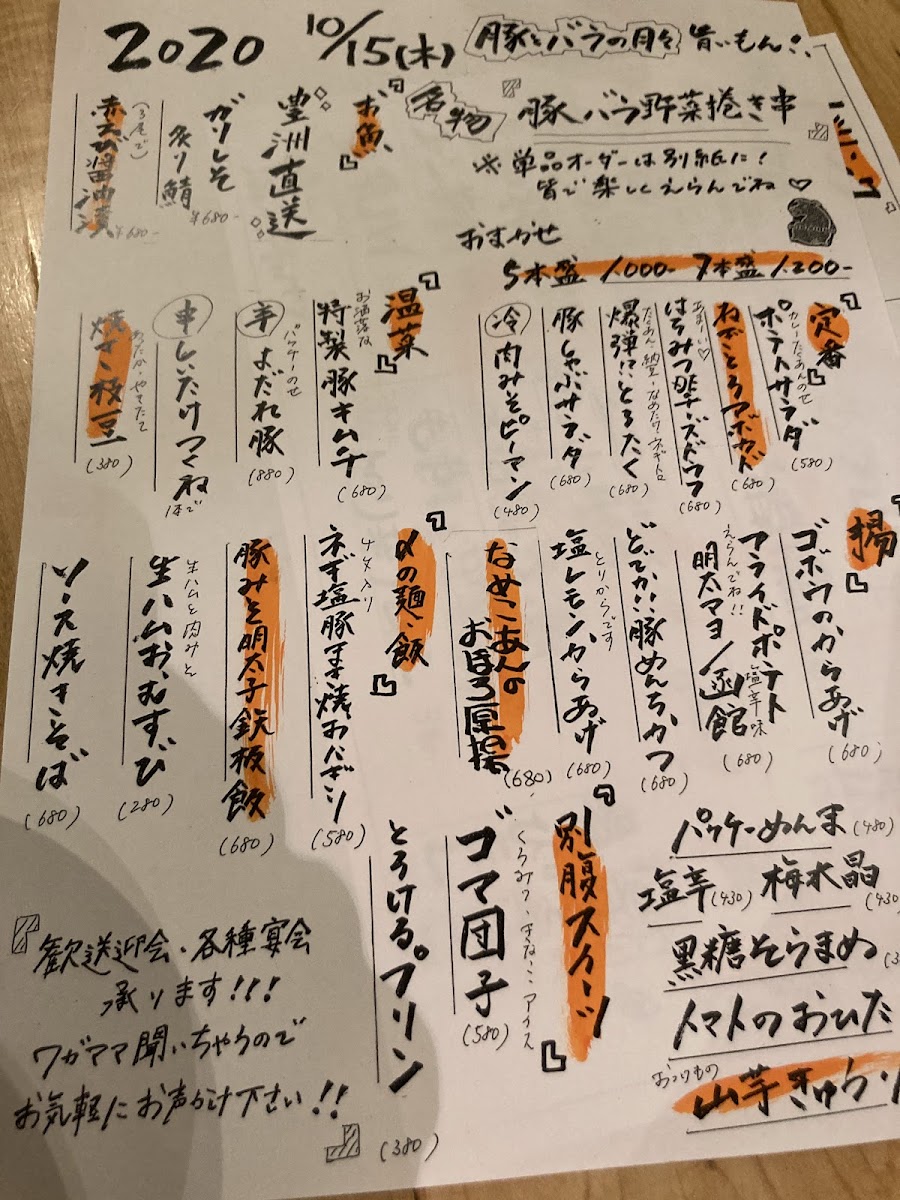 2020 10/15(木) 豚とバラの月々旨いもん！
名物
『豚バラ野菜捲き串』
※単品オーダーは別紙に！
皆で楽しくえらんでね♡
おまかせ
5本盛 1,000- 7本盛 1,200-
『お魚』
豊洲直送
ガリしそ
炙り鯖
¥680-
(3尾で)
赤えび醤油漬
¥680-
『定番』
カレーたくあんのせ
ポテトサラダ
(580)
ねぎとろアボカド
(680)
あまーい♡
はちみつチーズドウフ
(680)
たくあん・納豆・なめたけ・ネギトロ
爆弾!!とろたく
(680)
豚しゃぶサラダ
(680)
冷 肉みそピーマン
(480)
『温菜』
お洒落な
特製豚キムチ
(680)
パクチーのせ
辛 よだれ豚
(880)
串 しいたけつくね
1本で
あたたか・やきたて
焼き枝豆
(380)
『揚』
ゴボウのからあげ
(680)
フライドポテト
えらんでね!!
明太マヨ/函館
塩辛味
(680)
どでかい豚めんちかつ
(680)
とりからです
塩レモンからあげ
(680)
なめこあんの
おぼろ厚揚
(680)
『〆の麺・飯』
4ヶ入り
ネギ塩豚玉焼おにぎり
(580)
豚みそ明太子鉄板飯
(680)
生ハムと肉みそ
生ハムおむすび
(280)
ソース焼きそば
(680)
『別腹スイーツ』
くろみつ・きなこ・アイス
ゴマ団子
(580)
とろけるプリン
(380)
パクチーめんま(480)
塩辛(430) 梅水晶(430)
黒糖そらまめ
トマトのおひた
おつけもの
山芋きゅう
『歓送迎会・各種宴会
承ります!!!
ワガママ聞いちゃうので
お気軽にお声がけ下さい!!』